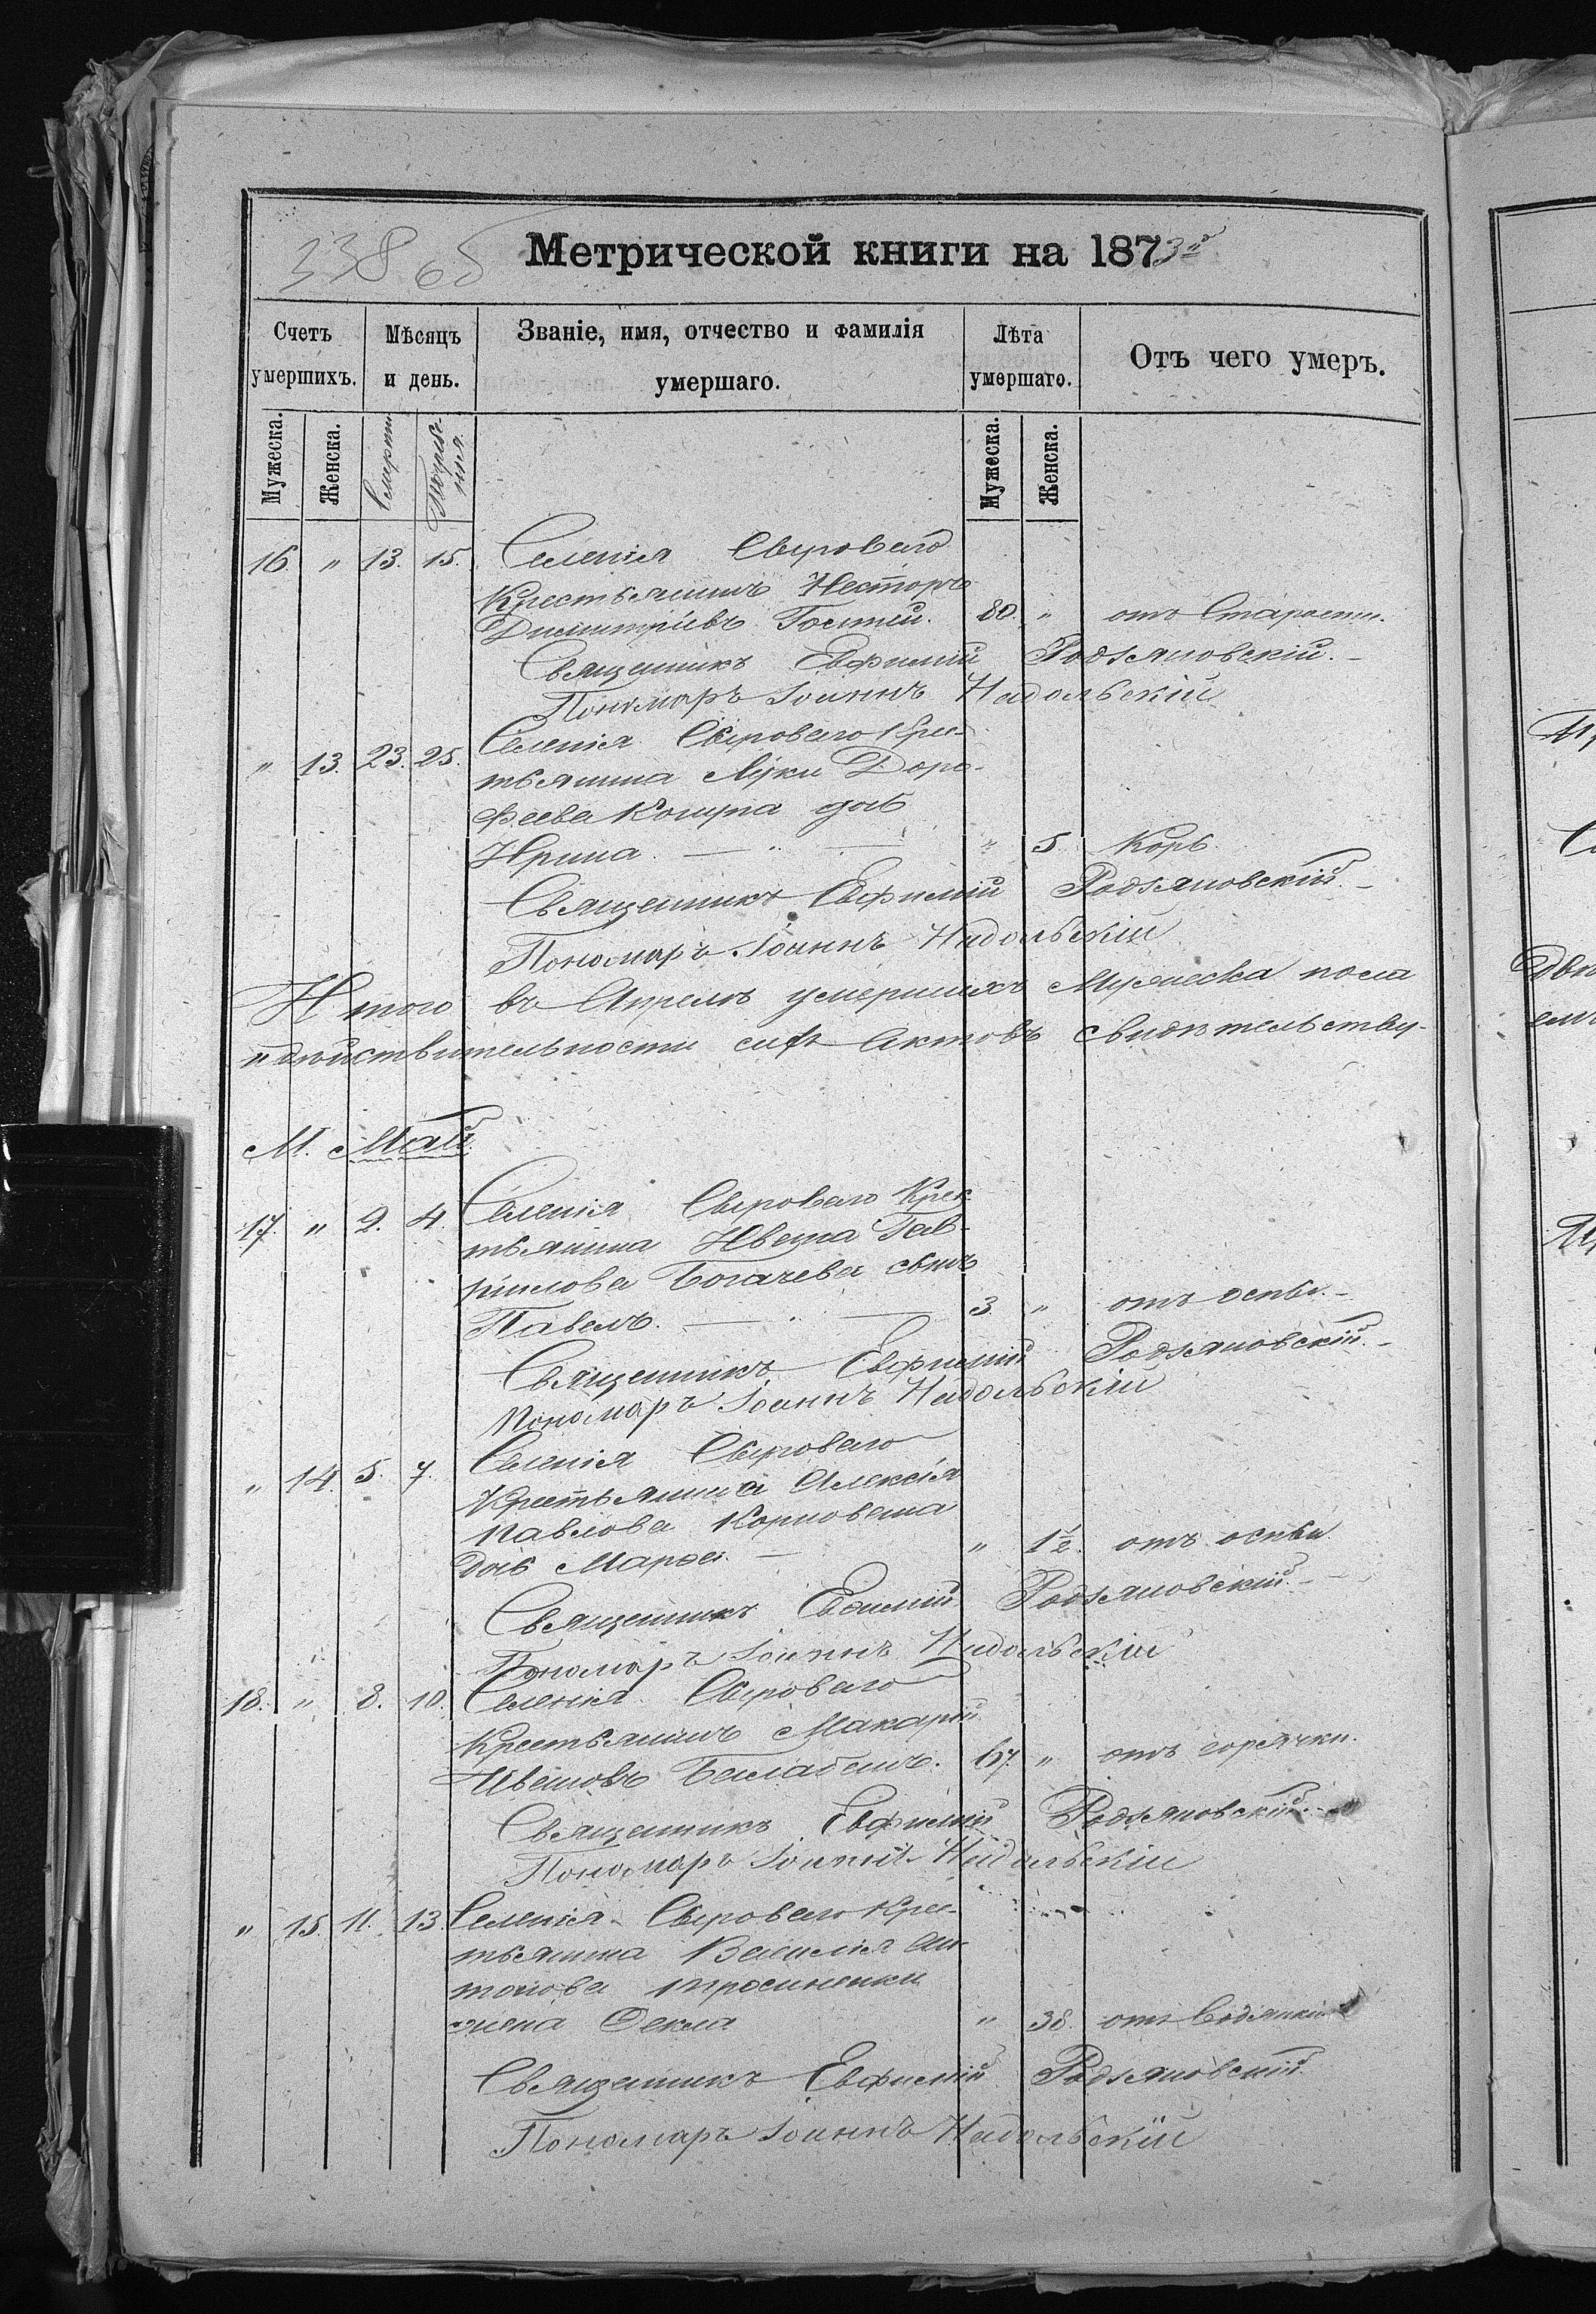 338 об
Метрической книги на 1873й
Счетъ умершихъ.
Мѣсяцъ и день.
Званіе, имя, отчество и фамилія умершаго.
Лѣта умершаго.
Отъ чего умеръ.
Мужеска. Женска. Смерти Погребенія. Мужеска. Женска.
16. " 13. 15. Селенія Сыроваго
Крестьянинъ Несторъ
Димитріевъ 80. " отъ Старости.
Священникъ Евфимій Родзяновскій.
Пономарь Іоаннъ Надольскій
" 13. 23. 25. Селенія Сыроваго Крес-
тьянина Луки Доро-
феева дочь
Ирина. — " — " 5 Корь.
Священникъ Евфимій Родзяновскій. –
Пономарь Іоаннъ Надольскій
Итого въ Апрелѣ умершихъ Мужеска пола
дѣйствительности сихъ Актовъ свидѣтельству-
М. Май.
17. " 2. 4. Селенія Сыроваго Крес-
тьянина Ивана Гав-
рилова Богачева сынъ
Павелъ. — " — 3. " отъ оспы. –
Священникъ Евфимій Родзяновскій. –
Пономарь Іоаннъ Надольскій
" 14. 5. 7. Селенія Сыроваго
Крестьянина Алексія
Павлова
дочь Марѳа. — " 1½. отъ оспы
Священникъ Евѳимій Родзяновскій. –
Пономарь Іоаннъ Надольскій
18. " 8. 10. Селенія Сыроваго
Крестьянинъ Макарій
Ивановъ Балабанъ. 67. " отъ горячки.
Священникъ Евфимій Родзяновскій. –
Пономарь Іоаннъ Надольскій
" 15. 11. 13 Селенія Сыроваго Крес-
тьянина Василія Ан-
тонова
жена Ѳекла " 38. отъ Водянки
Священникъ Евфимій Родзяновскій.
Пономарь Іоаннъ Надольскій